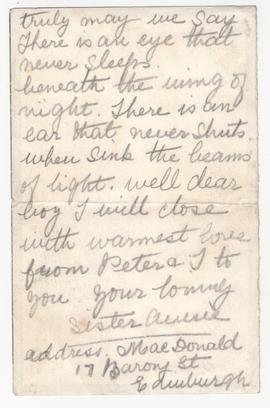 truly may we say
There is an eye that
never sleeps.
beneath the wing of
night. There is an
ear that never shuts
when sink the beams
of light. well dear
boy I will close
with warmest love
from Peter & I to
you your loving
Sister
address. MacDonald
17 Barony St
Edinburgh